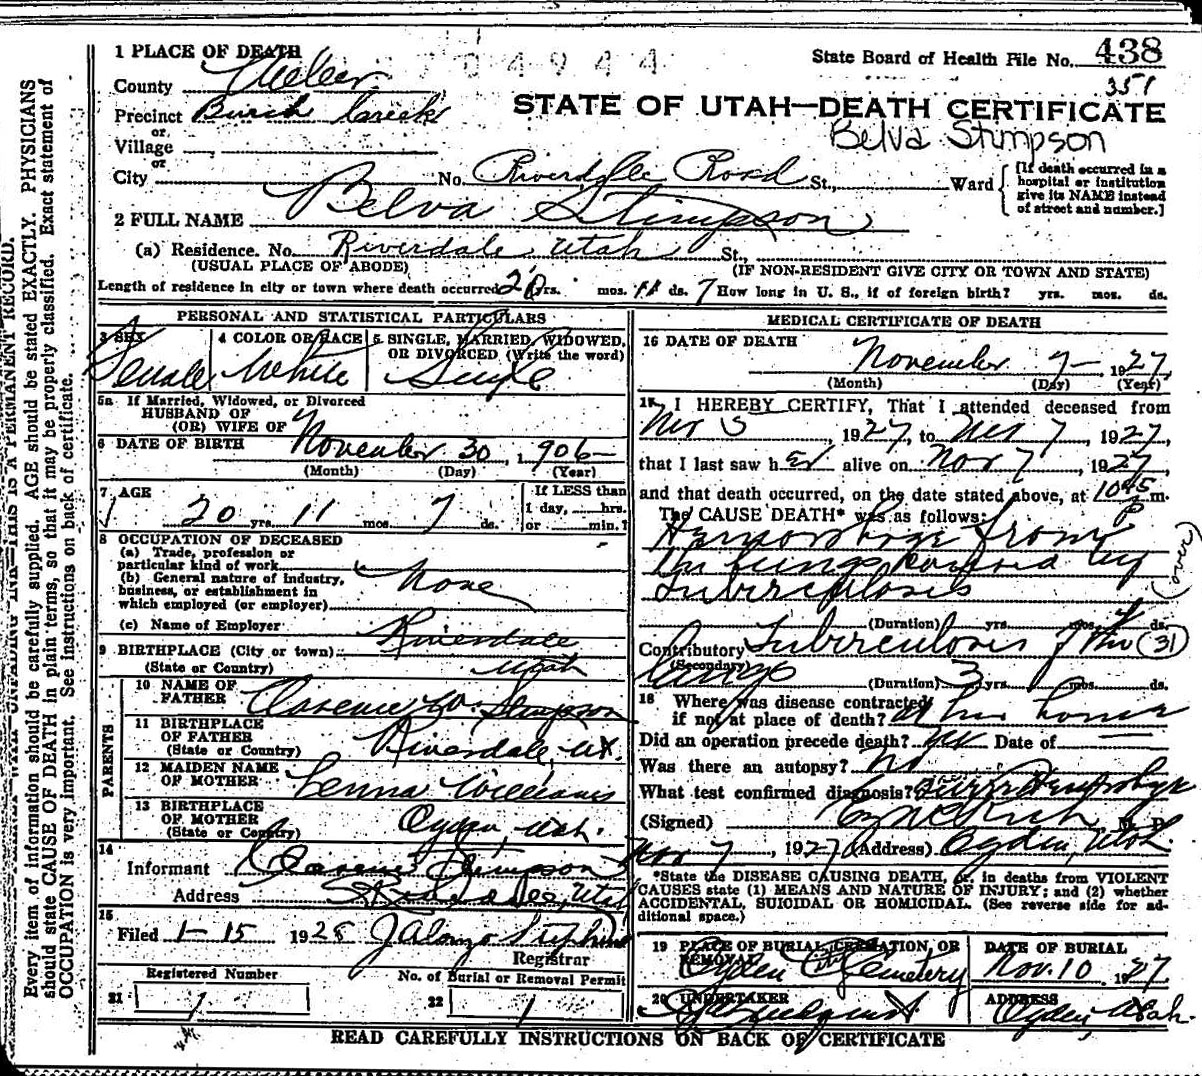 1 PLACE OF DEATH
State Board of Health File No. 438
351
County Weber
STATE OF UTAH—DEATH CERTIFICATE
Precinct Burch Creek
Belva Stimpson
or
Village
or
City No. Riverdale Road St., Ward
[If death occurred in a hospital or institution give its NAME instead of street and number.]
2 FULL NAME Belva Stimpson
(a) Residence. No. Riverdale Utah St.,
(USUAL PLACE OF ABODE) (IF NON-RESIDENT GIVE CITY OR TOWN AND STATE)
Length of residence in city or town where death occurred 20 yrs. mos. 11 ds. 7 How long in U. S., if of foreign birth? yrs. mos. ds.
PERSONAL AND STATISTICAL PARTICULARS
3 SEX
Female
4 COLOR OR RACE
White
5 SINGLE, MARRIED, WIDOWED, OR DIVORCED (Write the word)
Single
5a If Married, Widowed, or Divorced
HUSBAND OF
(OR) WIFE OF
6 DATE OF BIRTH November 30, 1906
(Month) (Day) (Year)
7 AGE
20 yrs. 11 mos. 7 ds.
If LESS than
1 day, hrs.
or min.?
8 OCCUPATION OF DECEASED
(a) Trade, profession or
particular kind of work
(b) General nature of industry,
business, or establishment in
which employed (or employer)
None
(c) Name of Employer
9 BIRTHPLACE (City or town) Riverdale
(State or Country) Utah
PARENTS
10 NAME OF
FATHER Clarence W. Stimpson
11 BIRTHPLACE
OF FATHER
(State or Country) Riverdale, Ut.
12 MAIDEN NAME
OF MOTHER Lenna Williams
13 BIRTHPLACE
OF MOTHER
(State or Country) Ogden, Utah.
14
Informant Clarence Stimpson
Address Riverdale, Utah
15
Filed 1-15 1928 J Alonzo Stephens
Registrar
Registered Number
21 1
No. of Burial or Removal Permit
22 1
MEDICAL CERTIFICATE OF DEATH
16 DATE OF DEATH
November 7 — 1927
(Month) (Day) (Year)
17 I HEREBY CERTIFY, That I attended deceased from
Nov 5, 1927, to Nov 7, 1927,
that I last saw her alive on Nov 7, 1927,
and that death occurred, on the date stated above, at 10 45 P m.
The CAUSE DEATH* was as follows:
Hemorrhage from
the lungs caused by
Tuberculosis
(over)
(Duration) yrs. mos. ds.
Contributory Tuberculosis of the (31)
(Secondary) lungs
(Duration) 3 yrs. mos. ds.
18 Where was disease contracted
if not at place of death? At her home
Did an operation precede death? no Date of —
Was there an autopsy? no
What test confirmed diagnosis?
(Signed) M. D.
Nov 7, 1927 (Address) Ogden, Utah.
*State the DISEASE CAUSING DEATH, or, in deaths from VIOLENT
CAUSES state (1) MEANS AND NATURE OF INJURY; and (2) whether
ACCIDENTAL, SUICIDAL OR HOMICIDAL. (See reverse side for ad-
ditional space.)
19 PLACE OF BURIAL, CREMATION, OR
REMOVAL
Ogden City Cemetery
DATE OF BURIAL
Nov. 10 1927
20 UNDERTAKER
ADDRESS
Ogden, Utah.
READ CAREFULLY INSTRUCTIONS ON BACK OF CERTIFICATE
THIS IS A PERMANENT RECORD.
Every item of information should be carefully supplied. AGE should be stated EXACTLY. PHYSICIANS
should state CAUSE OF DEATH in plain terms, so that it may be properly classified. Exact statement of
OCCUPATION is very important. See instructions on back of certificate.